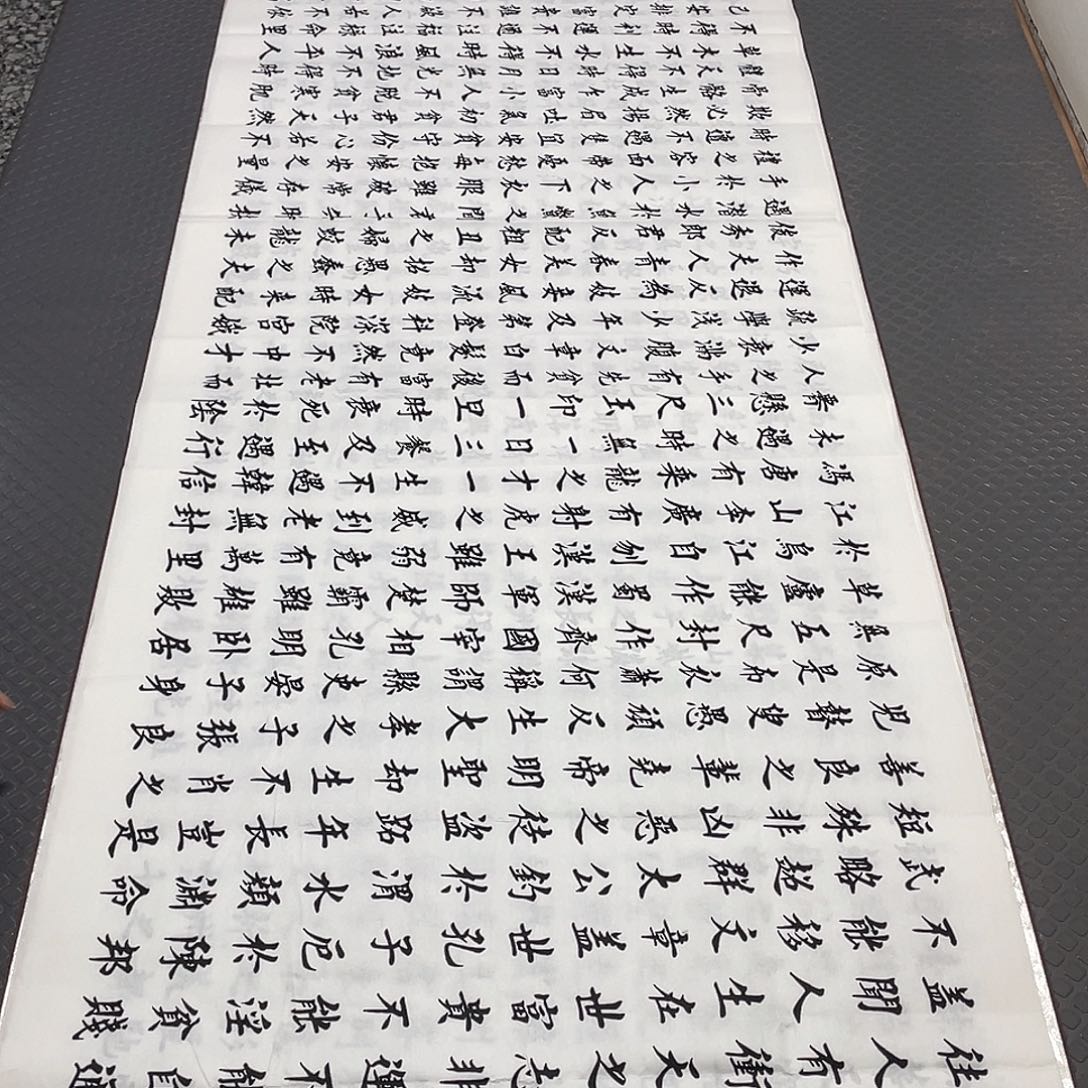 往人有衝天之志非運不能自通
盖聞人生在世富貴不能淫貧賤
不能移文章盖世孔子厄於陳邦
式略超群太公釣於渭水顏淵命
短殊非凶惡之徒盜路年長豈是
善良之輩堯帝明聖却生不肖之
兒瞽叟愚頑反生大孝之子張良
原是布衣蕭何稱謂縣吏晏子身
無五尺封作齊國宰相孔明臥居
草廬能作蜀漢軍師楚霸雖雄敗
於烏江自刎漢王雖弱竟有萬里
江山李廣有射虎之威到老無封
馮唐有乘龍之才一生不遇韓信
未遇之時無一日三餐及至遇行
齊懸三尺玉印一旦時衰死於陰
人之手有先貧而後富有老壯而
少衰滿腹文章白髮竟然不中才
疏學淺少年及第登科深院宮娥
運退反為妓妾風流妓女時來配
作夫人青春美女却招愚蠢之夫
俊秀郎君反配粗丑之婦蛟龍未
遇潛水於魚鱉之間君子
手於小人之下衣服雖破常存儀
禮之容面帶憂愁每抱懷安之量
時遭不遇只宜安貧守份心若不
欺必然揚眉吐氣初貧君子天然
骨骼生成乍富小人不脫貧寒肌
體天不得時日月無光地不得時
草木不生水不得時風浪不平人
不得時利運不通注福注祿命里